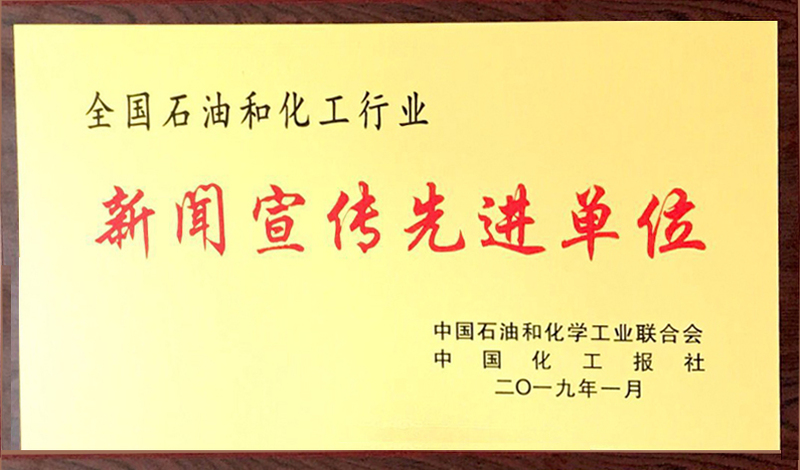 全国石油和化工行业
新闻宣传先进单位
中国石油和化学工业联合会
中国化工报社
二〇一九年一月